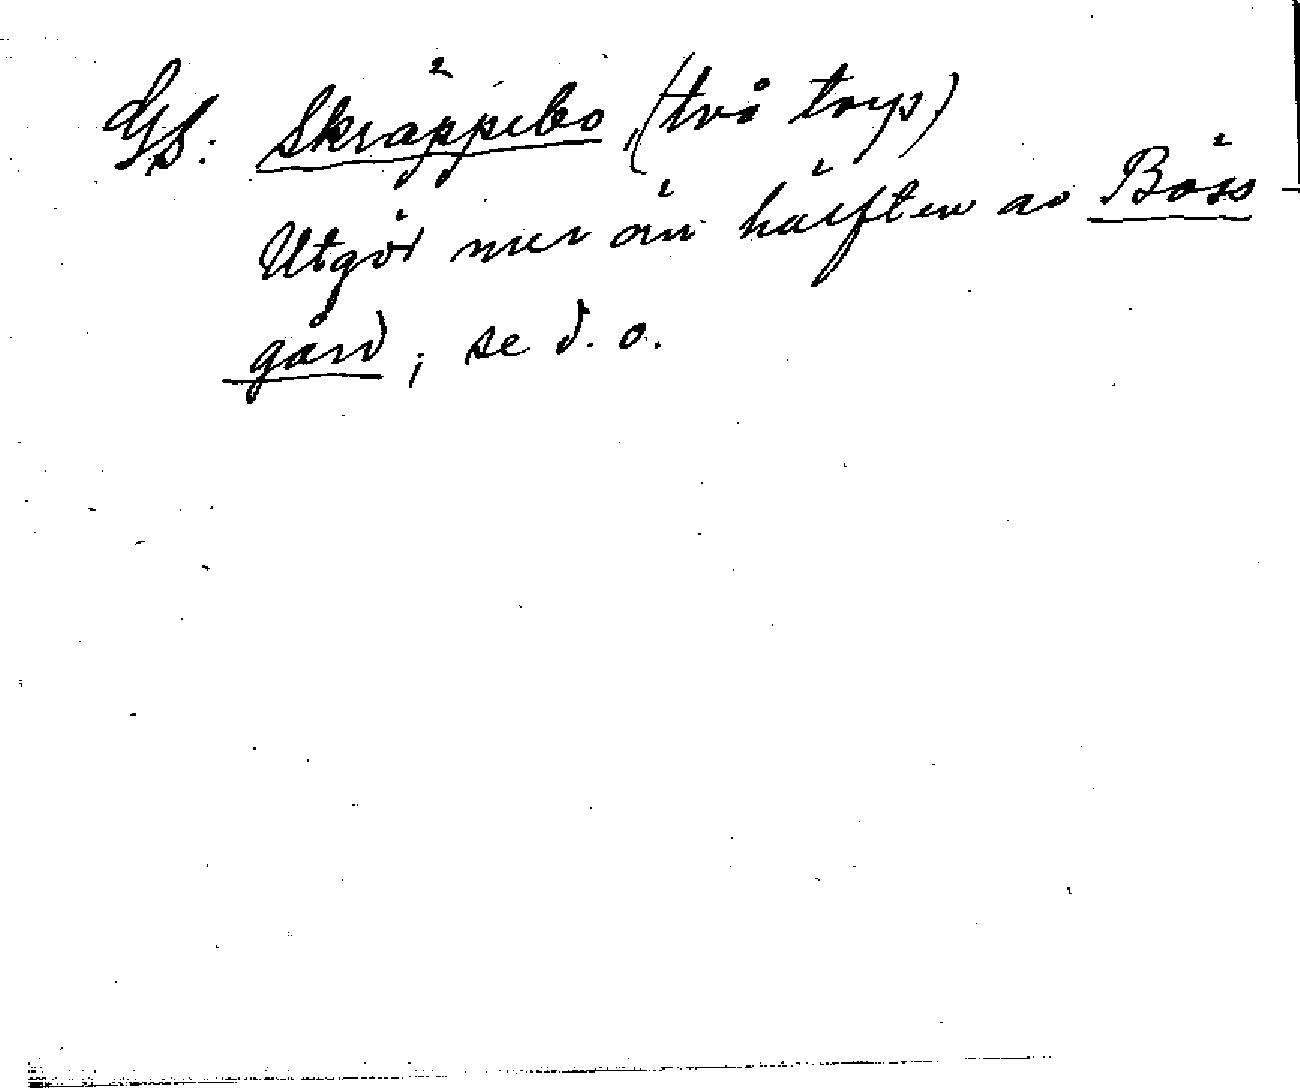 Gs: Skräppebo (två torp)
Utgör mer än hälften av Böss
gård, se d. o.